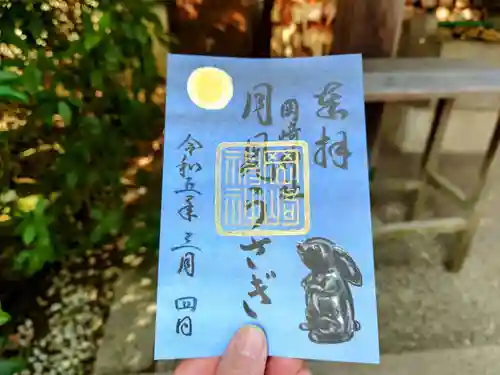 奉拝
岡崎神社
月 うさぎ
令和五年三月四日